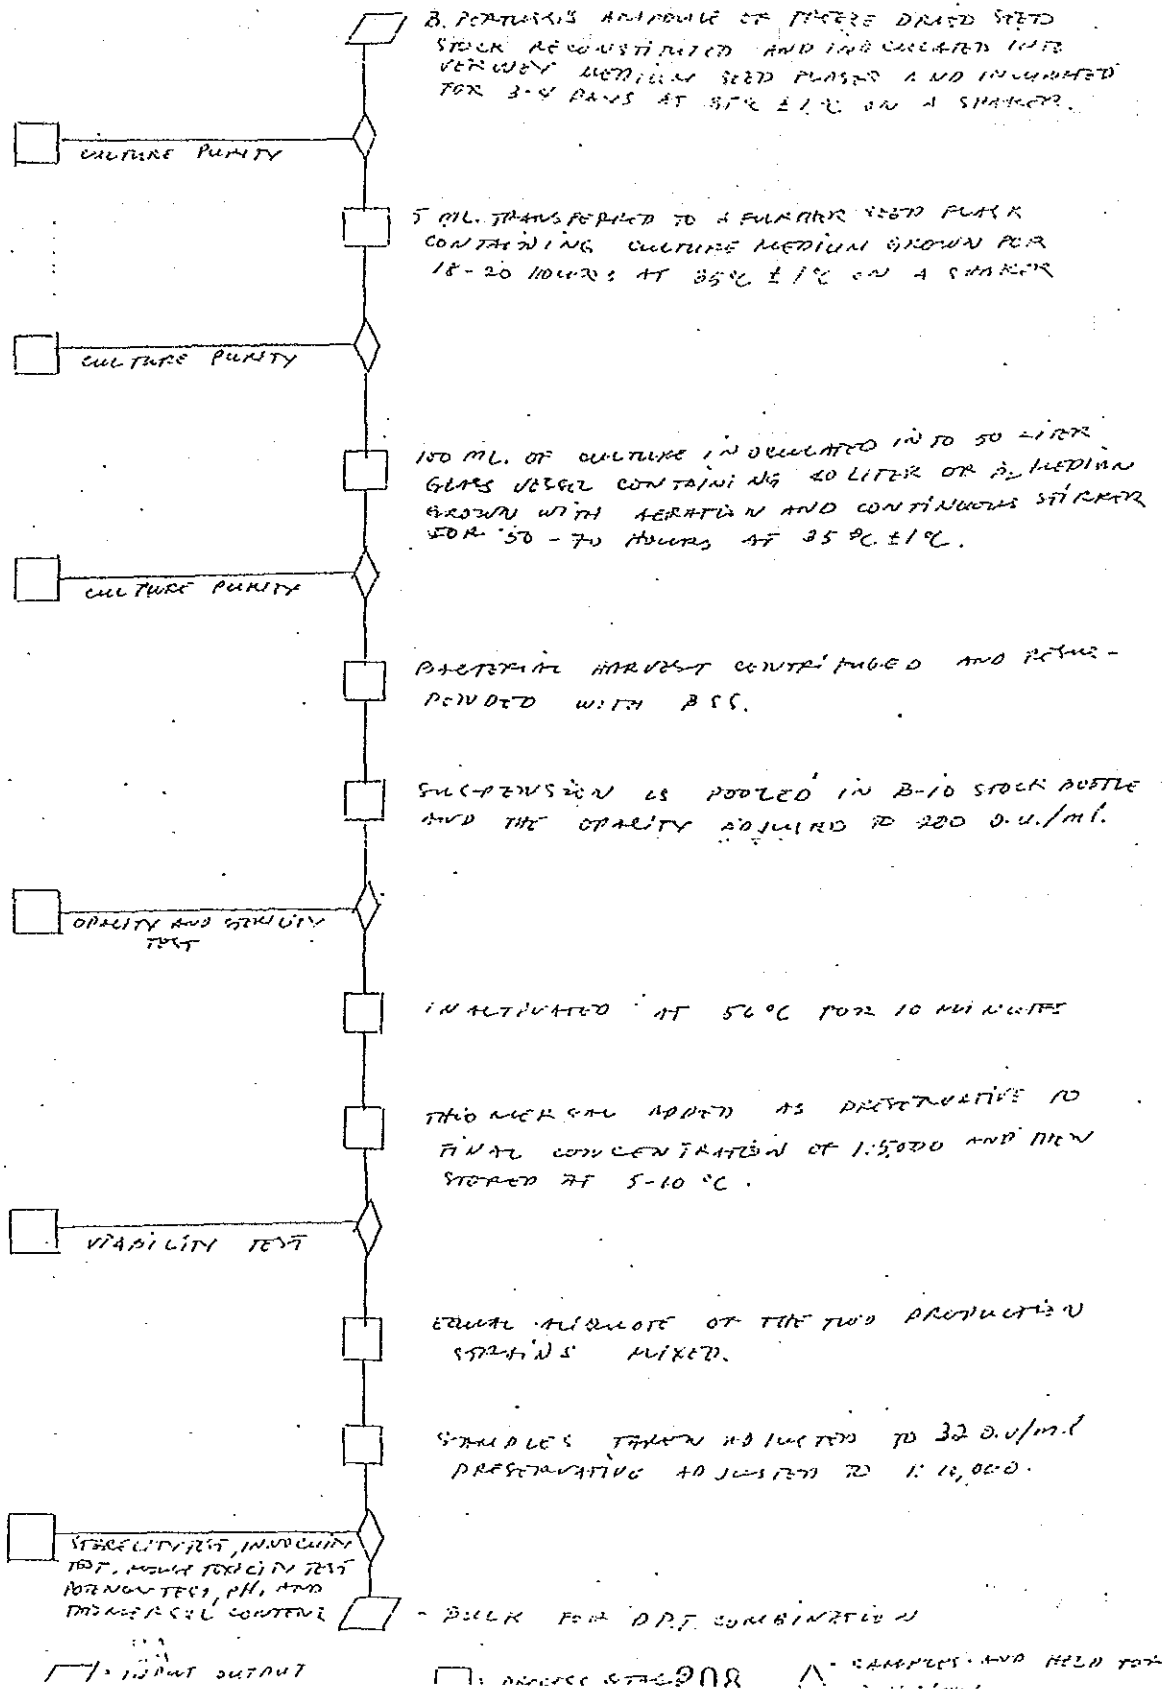 B. PERTUSSIS AMPOULE OF FREEZE DRIED SEED
STOCK RECONSTITUTED AND INOCULATED INTO
VERWEY MEDIUM SEED FLASKS AND INCUBATED
FOR 3-4 DAYS AT 35°C ±1°C ON A SHAKER.
CULTURE PURITY
5 ML. TRANSFERRED TO A FURTHER SEED FLASK
CONTAINING CULTURE MEDIUM GROWN FOR
18-20 HOURS AT 35°C ±1°C ON A SHAKER
CULTURE PURITY
100 ML. OF CULTURE INOCULATED INTO 50 LITER
GLASS VESSEL CONTAINING 40 LITER OF B2 MEDIAN
GROWN WITH AERATION AND CONTINUOUS STIRRER
FOR 50-70 HOURS AT 35°C ±1°C.
CULTURE PURITY
BACTERIAL HARVEST CENTRIFUGED AND RESUS-
PENDED WITH BSS.
SUSPENSION IS POOLED IN B-10 STOCK BOTTLE
AND THE OPACITY ADJUSTED TO 200 O.U./ml.
OPACITY AND STERILITY
TEST
INACTIVATED AT 56°C FOR 10 MINUTES
THIOMERSAL ADDED AS PRESERVATIVE TO
FINAL CONCENTRATION OF 1:5,000 AND THEN
STORED AT 5-10 °C.
VIABILITY TEST
EQUAL ALIQUOTE OF THE TWO PRODUCTION
STRAINS MIXED.
SAMPLES TAKEN ADJUSTED TO 32 O.U/ml
PRESERVATIVE ADJUSTED TO 1:10,000.
STERELITY TEST, INNOCUITY
TEST, MOUSE TOXICITY TEST
POTENCY TEST, PH, AND
THIOMERSAL CONTENT
- BULK FOR D.P.T. COMBINATION
: INPUT OUTPUT
: PROCESS STAGE
208
: SAMPLES AND HELD FOR